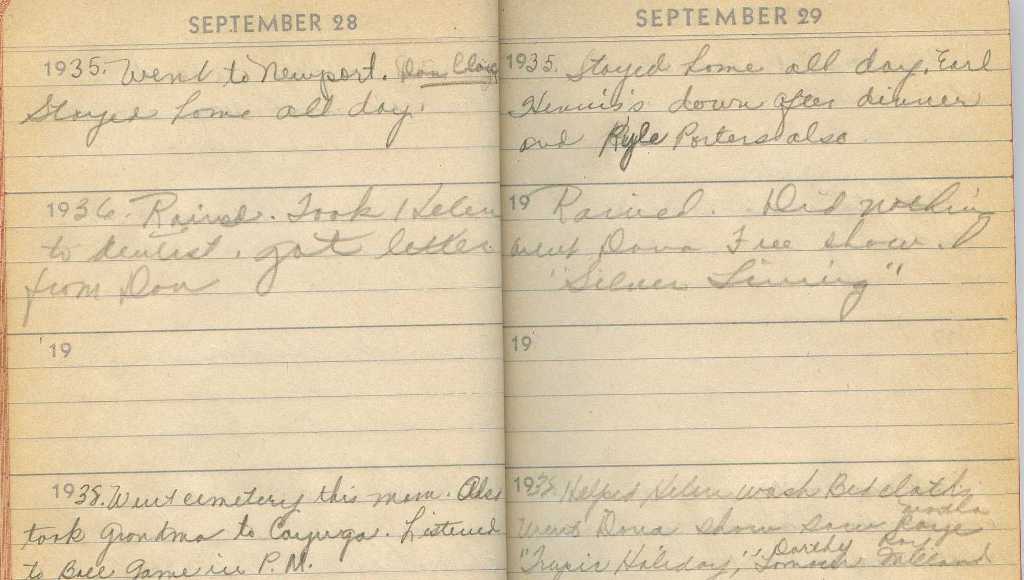 SEPTEMBER 28
1935. Went to Newport. Don
Stayed home all day.
1936. Rained. Took Helen
to dentist. got letter
from Don
19
1938. Went cemetery this morn. Also
took Grandma to Cayuga. Listened
to Ball Game in P.M.
SEPTEMBER 29
1935. Stayed home all day. Earl
down after dinner
and Kyle Porters also
19 Rained. Did nothing
went Dana Free show.
"Silver Lining"
19
1938 Helped Helen wash Bed cloths
Went Dana show saw Raye
"Tropic Holiday," Dorothy Milland